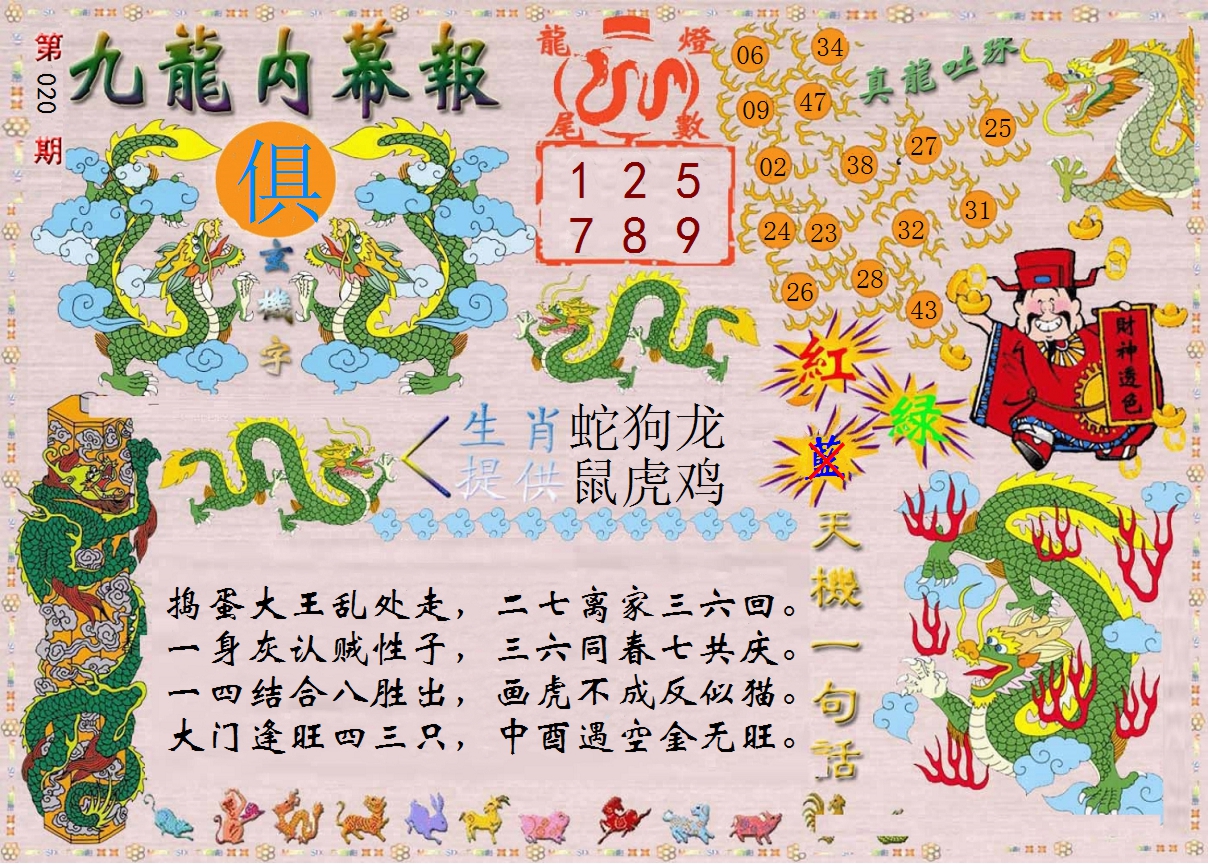 第020期
九龍内幕報
俱
玄機字
龍燈尾數
1 2 5
7 8 9
真龍吐珠
06 34
09 47
02 38 27 25
24 23 32 31
26 28 43
財神透色
紅
綠
藍
生肖 蛇狗龙
提供 鼠虎鸡
捣蛋大王乱处走，二七离家三六回。
一身灰认贼性子，三六同春七共庆。
一四结合八胜出，画虎不成反似猫。
大门逢旺四三只，中酉遇空金无旺。
天機一句話